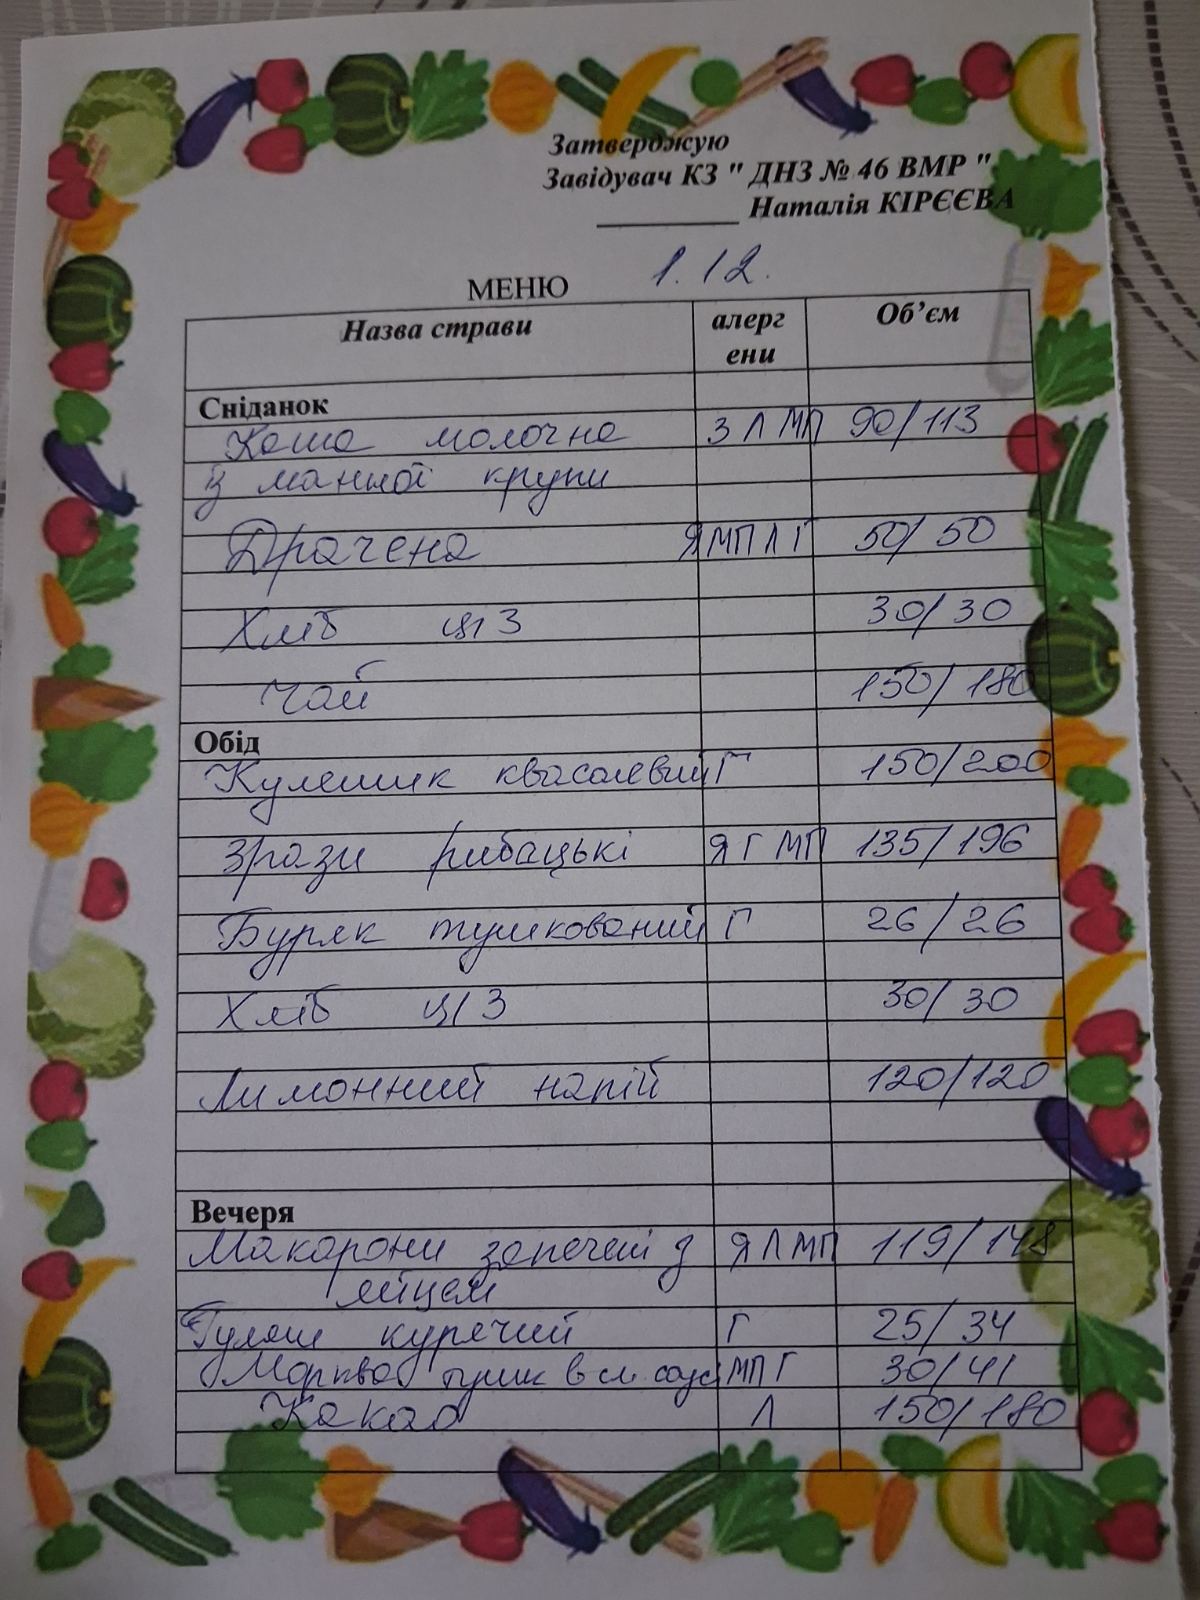 Затверджую
Завідувач КЗ " ДНЗ № 46 ВМР "
Наталія КІРЄЄВА
МЕНЮ 1.12.
Назва страви алерг Об’єм
ени
Сніданок
Каша молочна З Л МП 90/113
із манної крупи
Драчена Я МП Л Г 50/50
Хліб ц/з 30/30
Чай 150/180
Обід
Кулешик квасолевий Г 150/200
Зрази рибацькі Я Г МП 135/196
Буряк тушкований Г 26/26
Хліб ц/з 30/30
Лимонний напій 120/120
Вечеря
Макарони запечені з Я Л МП 119/148
яйцем
Гуляш курячий Г 25/34
Морква тушк в см. соусі МП Г 30/41
Какао Л 150/180